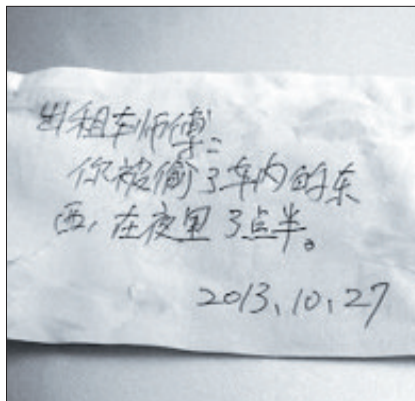 出租车师傅:
你被偷了车内的东
西,在夜里3点半。
2013.10.27